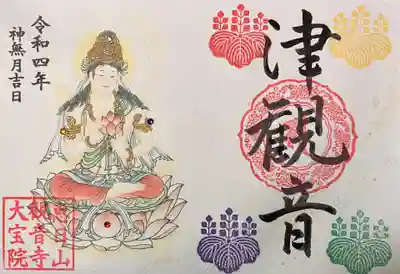 津觀音
令和四年
神無月吉日
恵日山
観音寺
大宝院